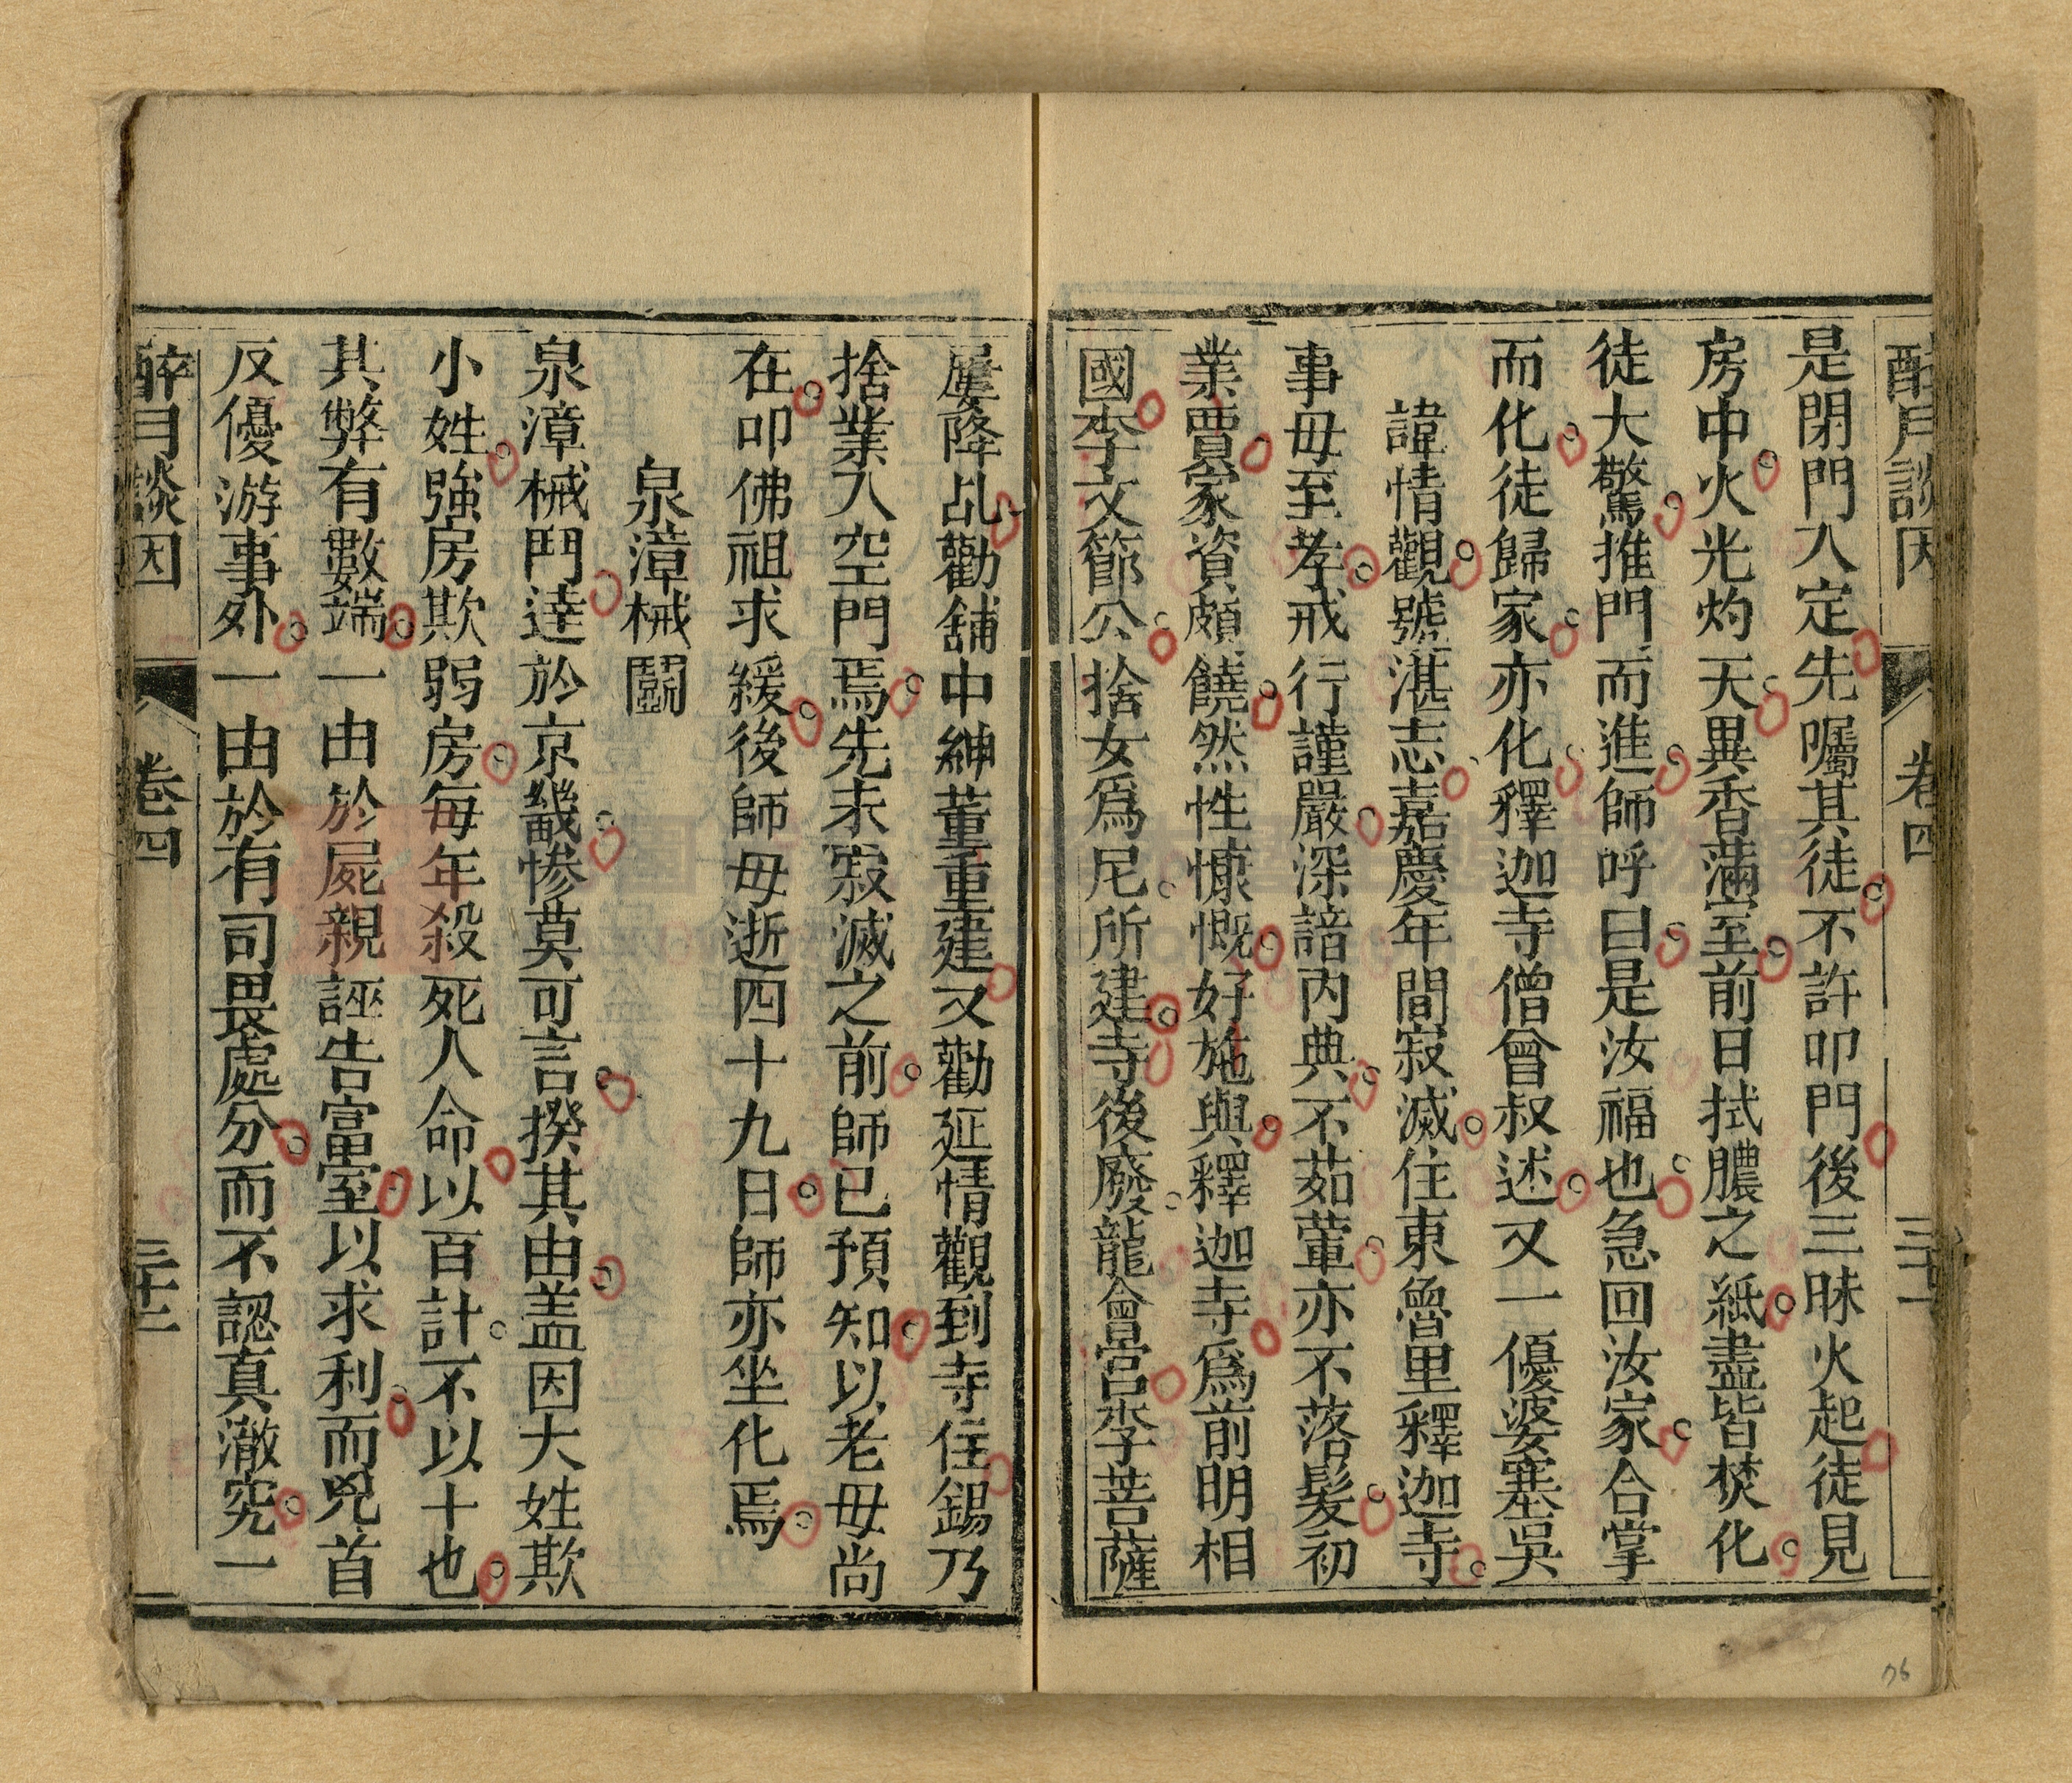 醉月談因 卷四 三十一
是閉門入定先囑其徒不許叩門後三昧火起徒見
房中火光灼天異香滿室前日拭膿之紙盡皆焚化
徒大驚推門而進師呼曰是汝福也急回汝家合掌
而化徒歸家亦化釋迦寺僧曾叔述又一優婆塞吳
諱情觀號湛志嘉慶年間寂滅住東魯里釋迦寺
事母至孝戒行謹嚴深諳內典不茹葷亦不落髮初
業賈家資頗饒然性慷慨好施與釋迦寺為前明相
國李文節公捨女為尼所建寺後廢龍會宮李菩薩
屢降乩勸舖中紳董重建又勸延情觀到寺住錫乃
捨業入空門焉先未寂滅之前師已預知以老母尚
在叩佛祖求緩後師母逝四十九日師亦坐化焉
泉漳械鬭
泉漳械鬥達於京畿慘莫可言揆其由盖因大姓欺
小姓強房欺弱房每年殺死人命以百計不以十也
其弊有數端一由於屍親誣告富室以求利而兇首
反優游事外一由於有司畏處分而不認真澈究一
醉月談因 卷四 三十二